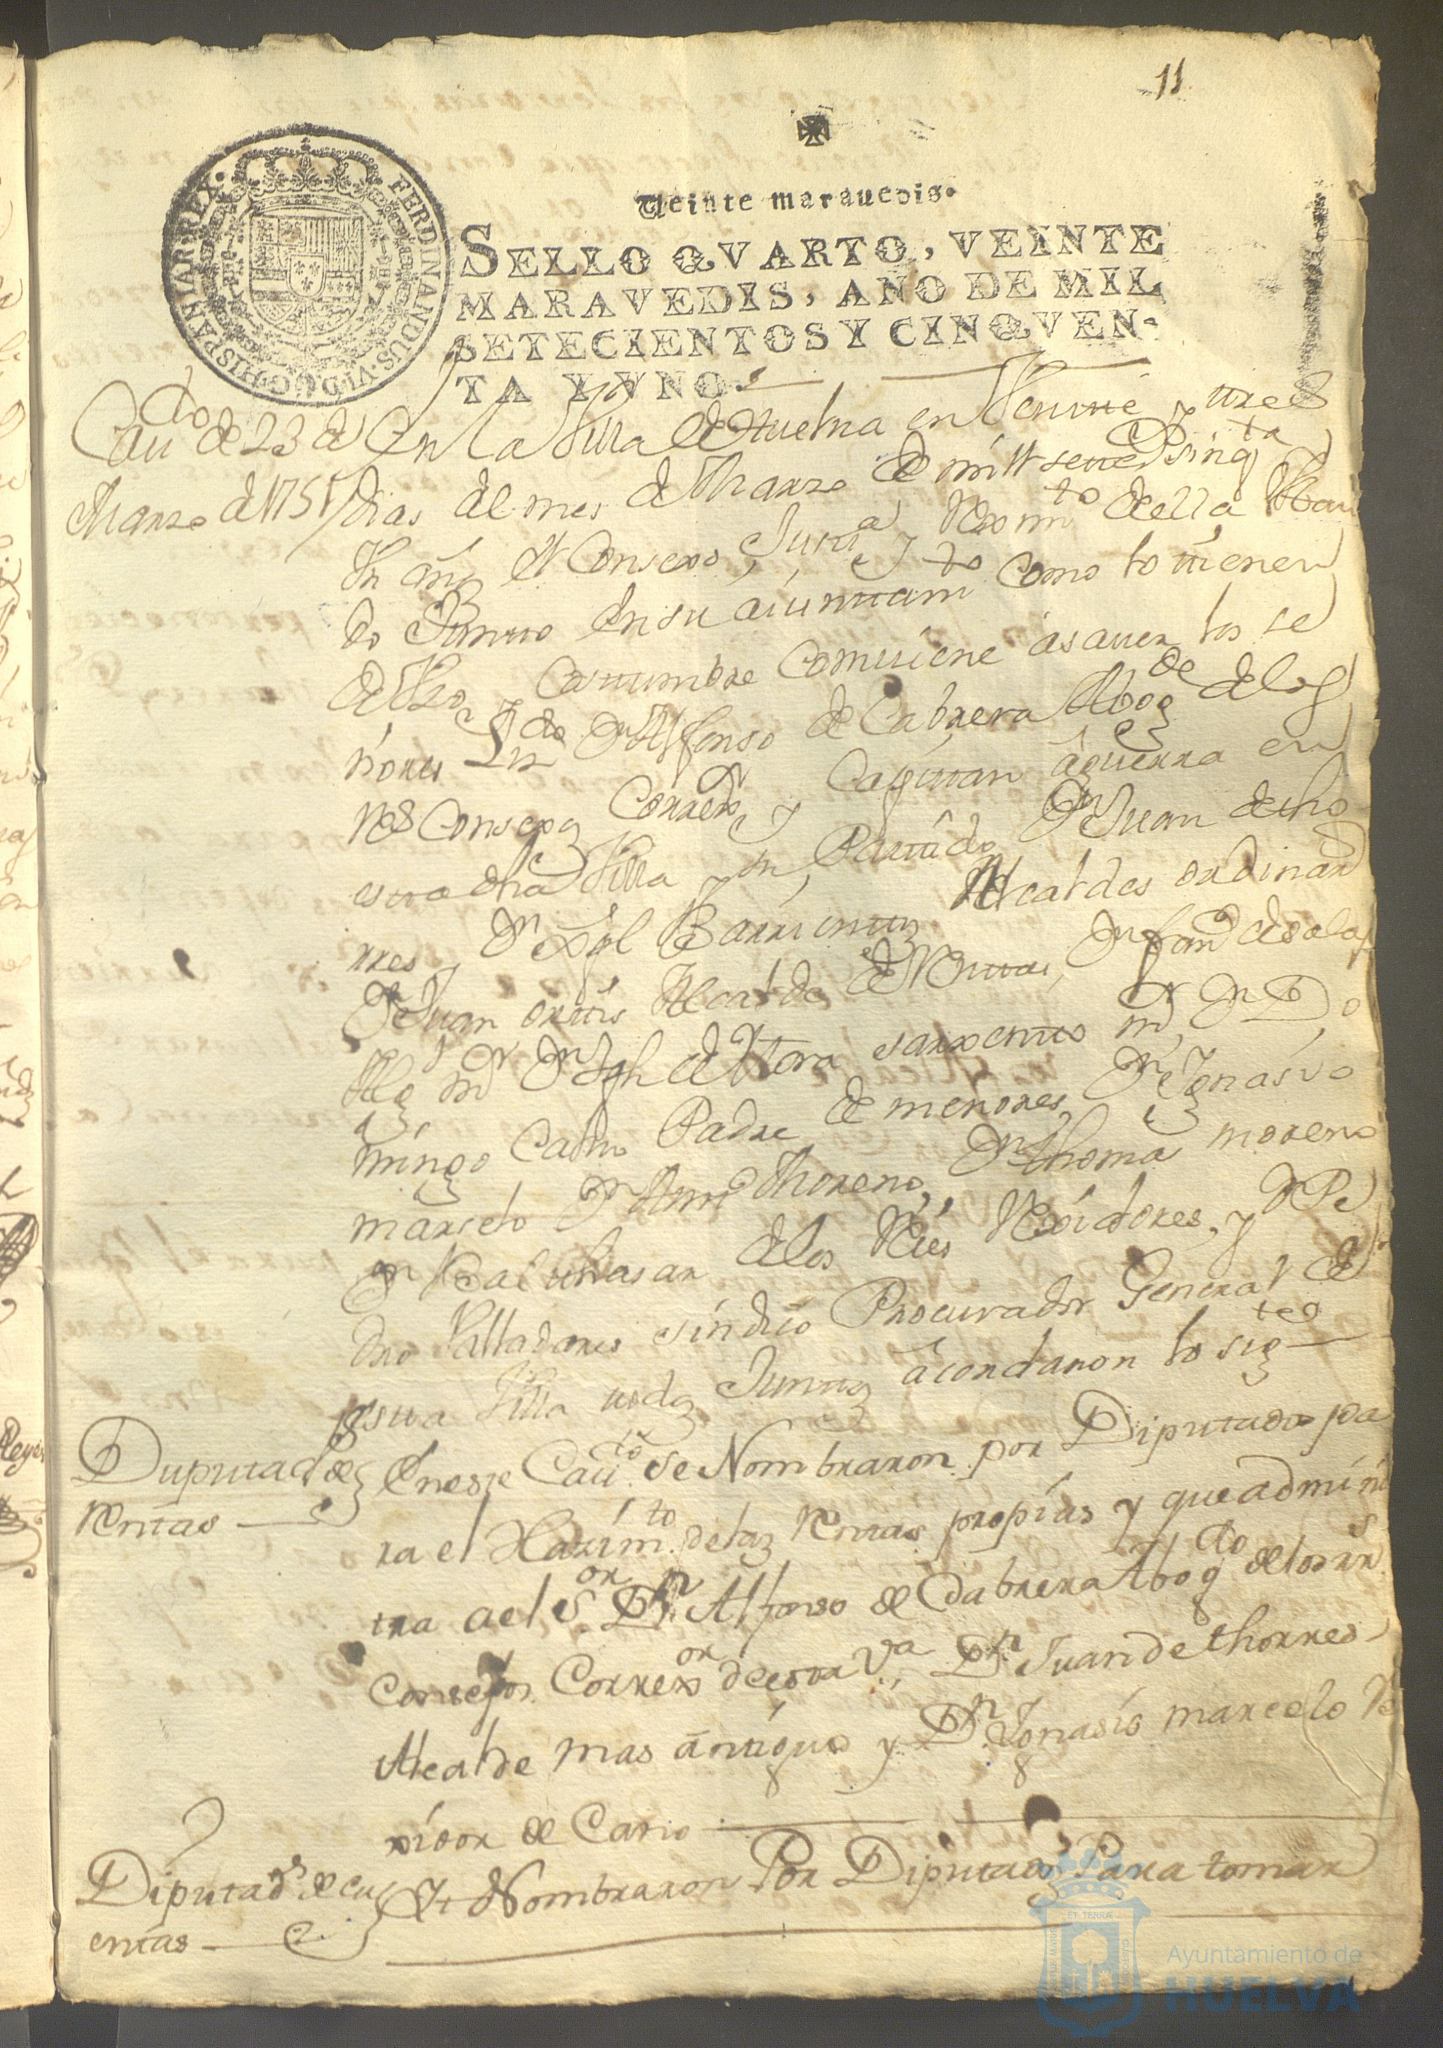 11
Veinte marauedis.
SELLO QVARTO, VEINTE
MARAVEDIS, AÑO DE MIL
SETECIENTOS Y CINQVEN-
TA Y VNO.
FERDINANDUS•VI•D•G•HISPANIAR•REX•
Caudo de 23 de
Marzo de 1751
En la Villa de Huelva en Veinte y tres
dias del mes de Marzo de mill setezs sinqta
Un añs el Consexo, Justa y Reximto de ella
do Juntto En su aiuntamto como lo tienen
de Uso y Costumbre Comviene asauer los se
ñores Lizdo Dn Alfonso de Cabrera Abogde de los
Rs Consexos Correxor y Capittan âguerra en
esta dha Villa y su Parttido Dn Juan de tho
rres, Dn Barrientos Alcaldes ordinars
Dn Juan ortis Alcalde de
Dn de Mora sarxento mr Dn Do
mingo Padre de menores Dn Ygnasio
marselo Dn Antto Moreno, Dn thomas moreno
Dn Balthasar de los Rîes Rexidores, y Dn Pe
dro Valladares sindico Procurador General de
estta Villa todos Junttos âcordaron lo sigtes
Duputads de
Rentas
En este Cauto se Nombraron por Diputados pa
ra el Hazimto de las Rentas propias y que adminis
tra a el Sor Dn Alfonso de Cabrera Abogdo de los rs
Consejos Correxor de esta Va, Dn Juan de thorres
Alcalde mas ântiguo y Dn Ygnasio marcelo Re
xidor de Cano
Diputads de cu
entas
Yt Nombraron Por Diputados Para tomar
Ayuntamiento de
HUELVA